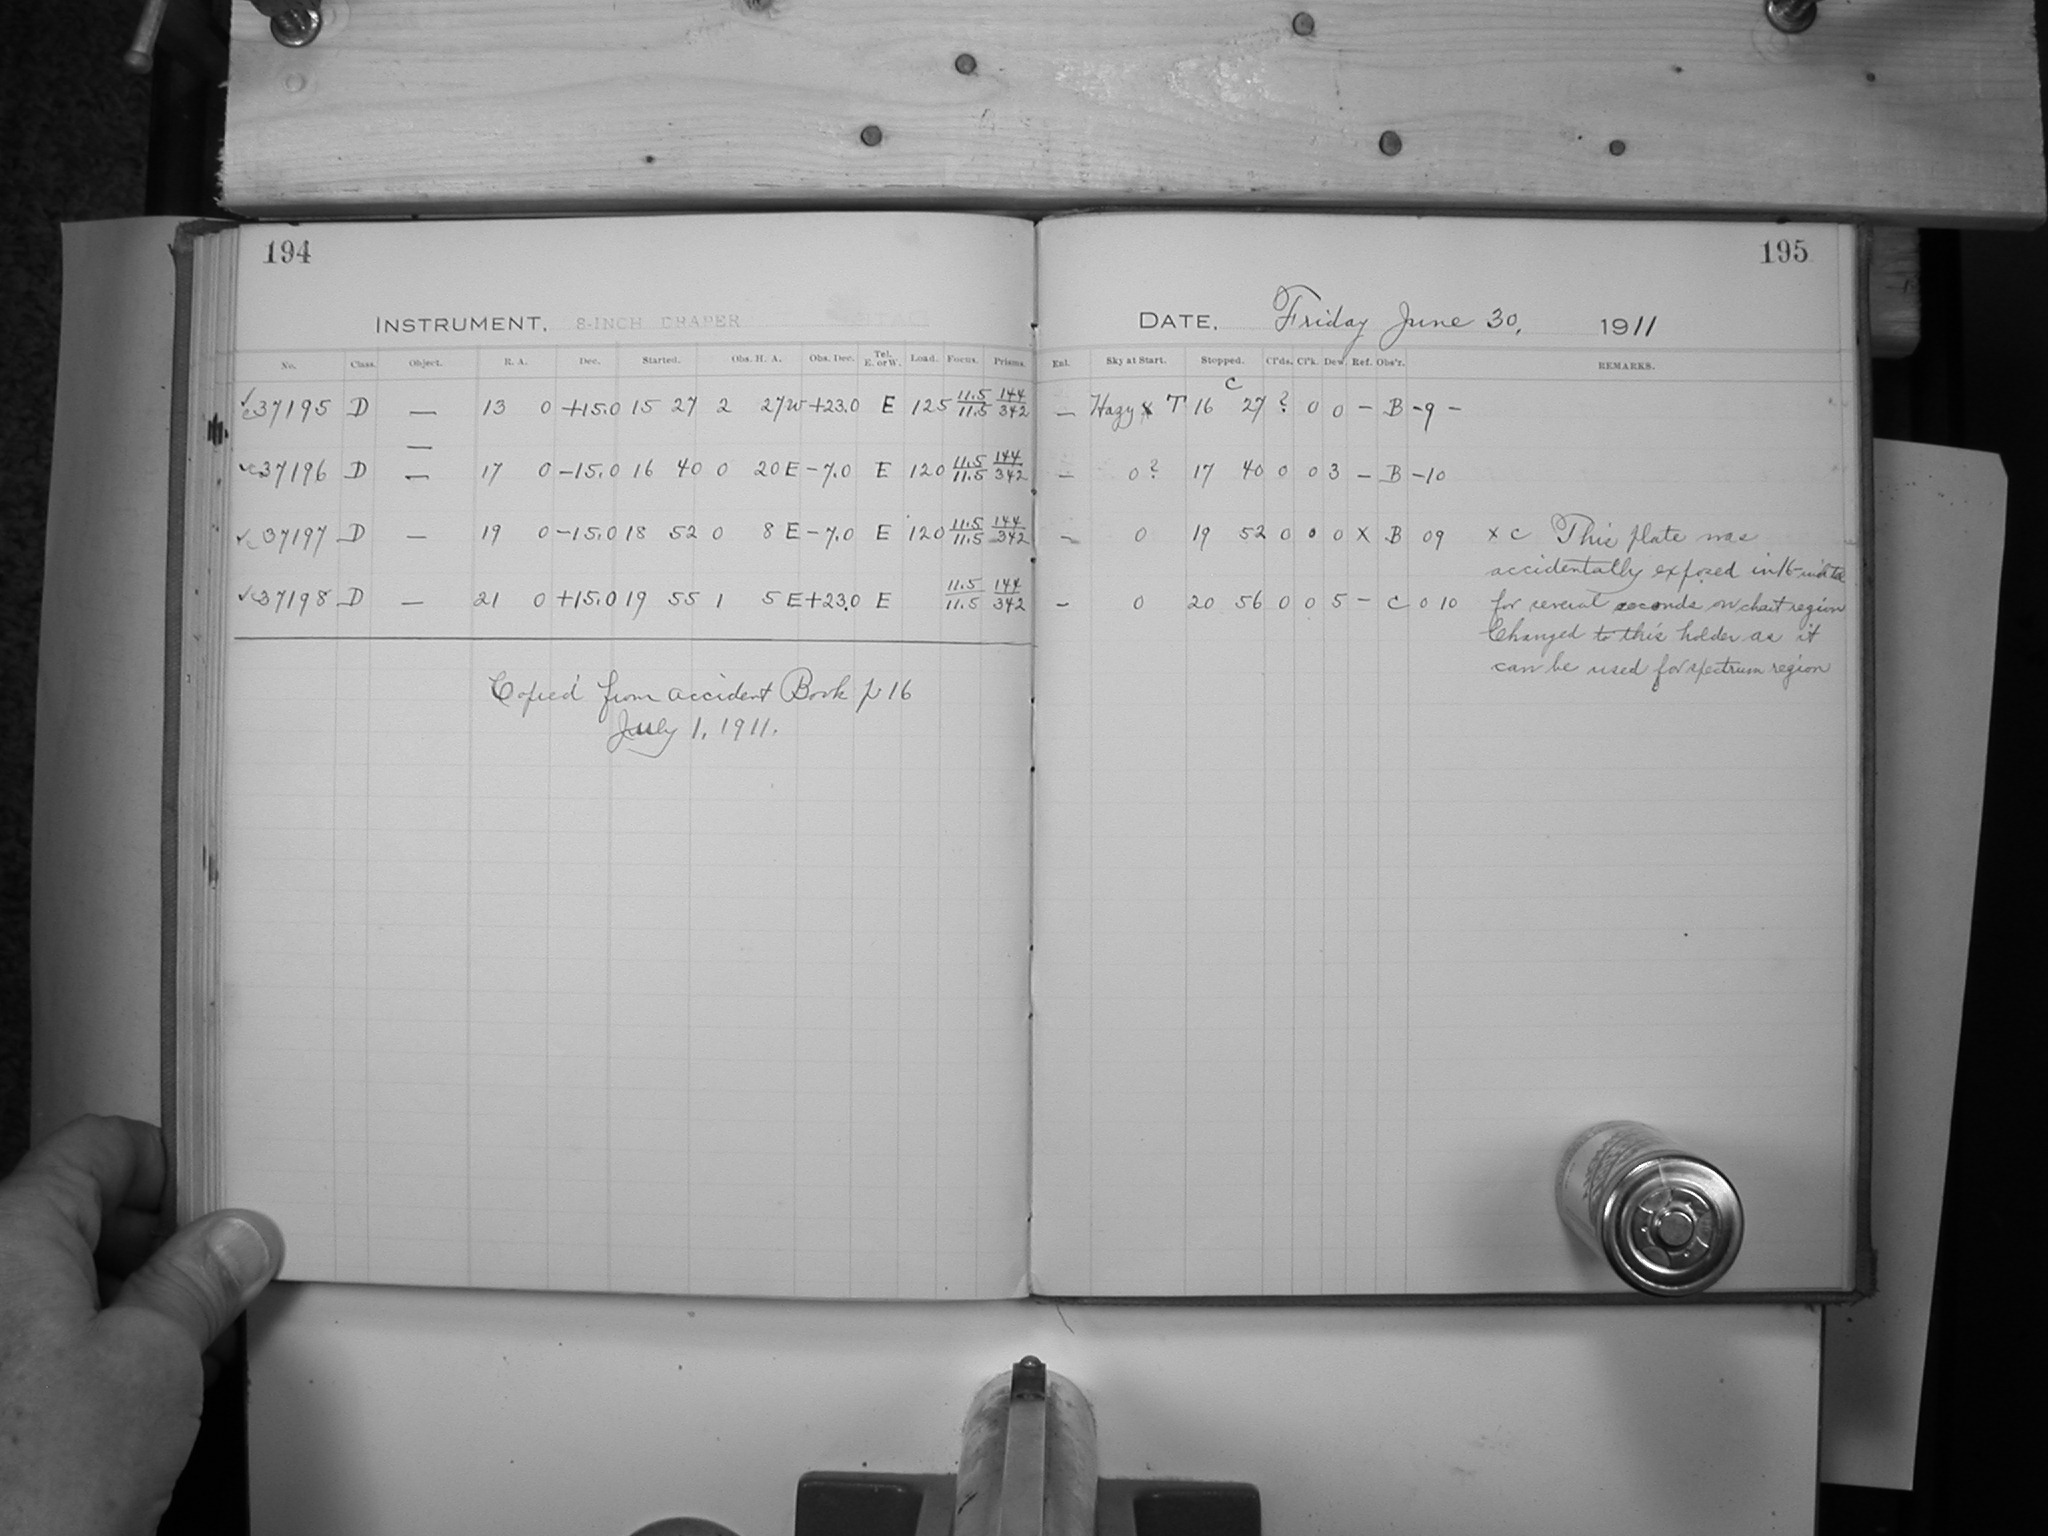 194
INSTRUMENT, 8-INCH DRAPER
No. Class. Object. R. A. Dec. Started. Obs. H. A. Obs. Dec. Tel. E. or W. Load. Focus. Prisms.
✓c37195 D — 13 0 +15.0 15 27 2 27W +23.0 E 125 11.5/11.5 144/342
—
✓c37196 D — 17 0 -15.0 16 40 0 20 E -7.0 E 120 11.5/11.5 144/342
✓c37197 D — 19 0 -15.0 18 52 0 8 E -7.0 E 120 11.5/11.5 144/342
✓c37198 D — 21 0 +15.0 19 55 1 5 E +23.0 E 11.5/11.5 144/342
Copied from accident Book p 16
July 1, 1911.
195
DATE, Friday June 30, 1911
Enl. Sky at Start. Stopped. Cl'ds. Cl'k. Dew. Ref. Obs'r. REMARKS.
C
— Hazy x T 16 27 ? 0 0 — B -9 -
— 0? 17 40 0 0 3 — B -10
— 0 19 52 0 0 0 X B 09 x C This plate was
accidentally exposed in
— 0 20 56 0 0 5 — C 0 10 for several seconds on chart region
Changed to this holder as it
can be used for spectrum region